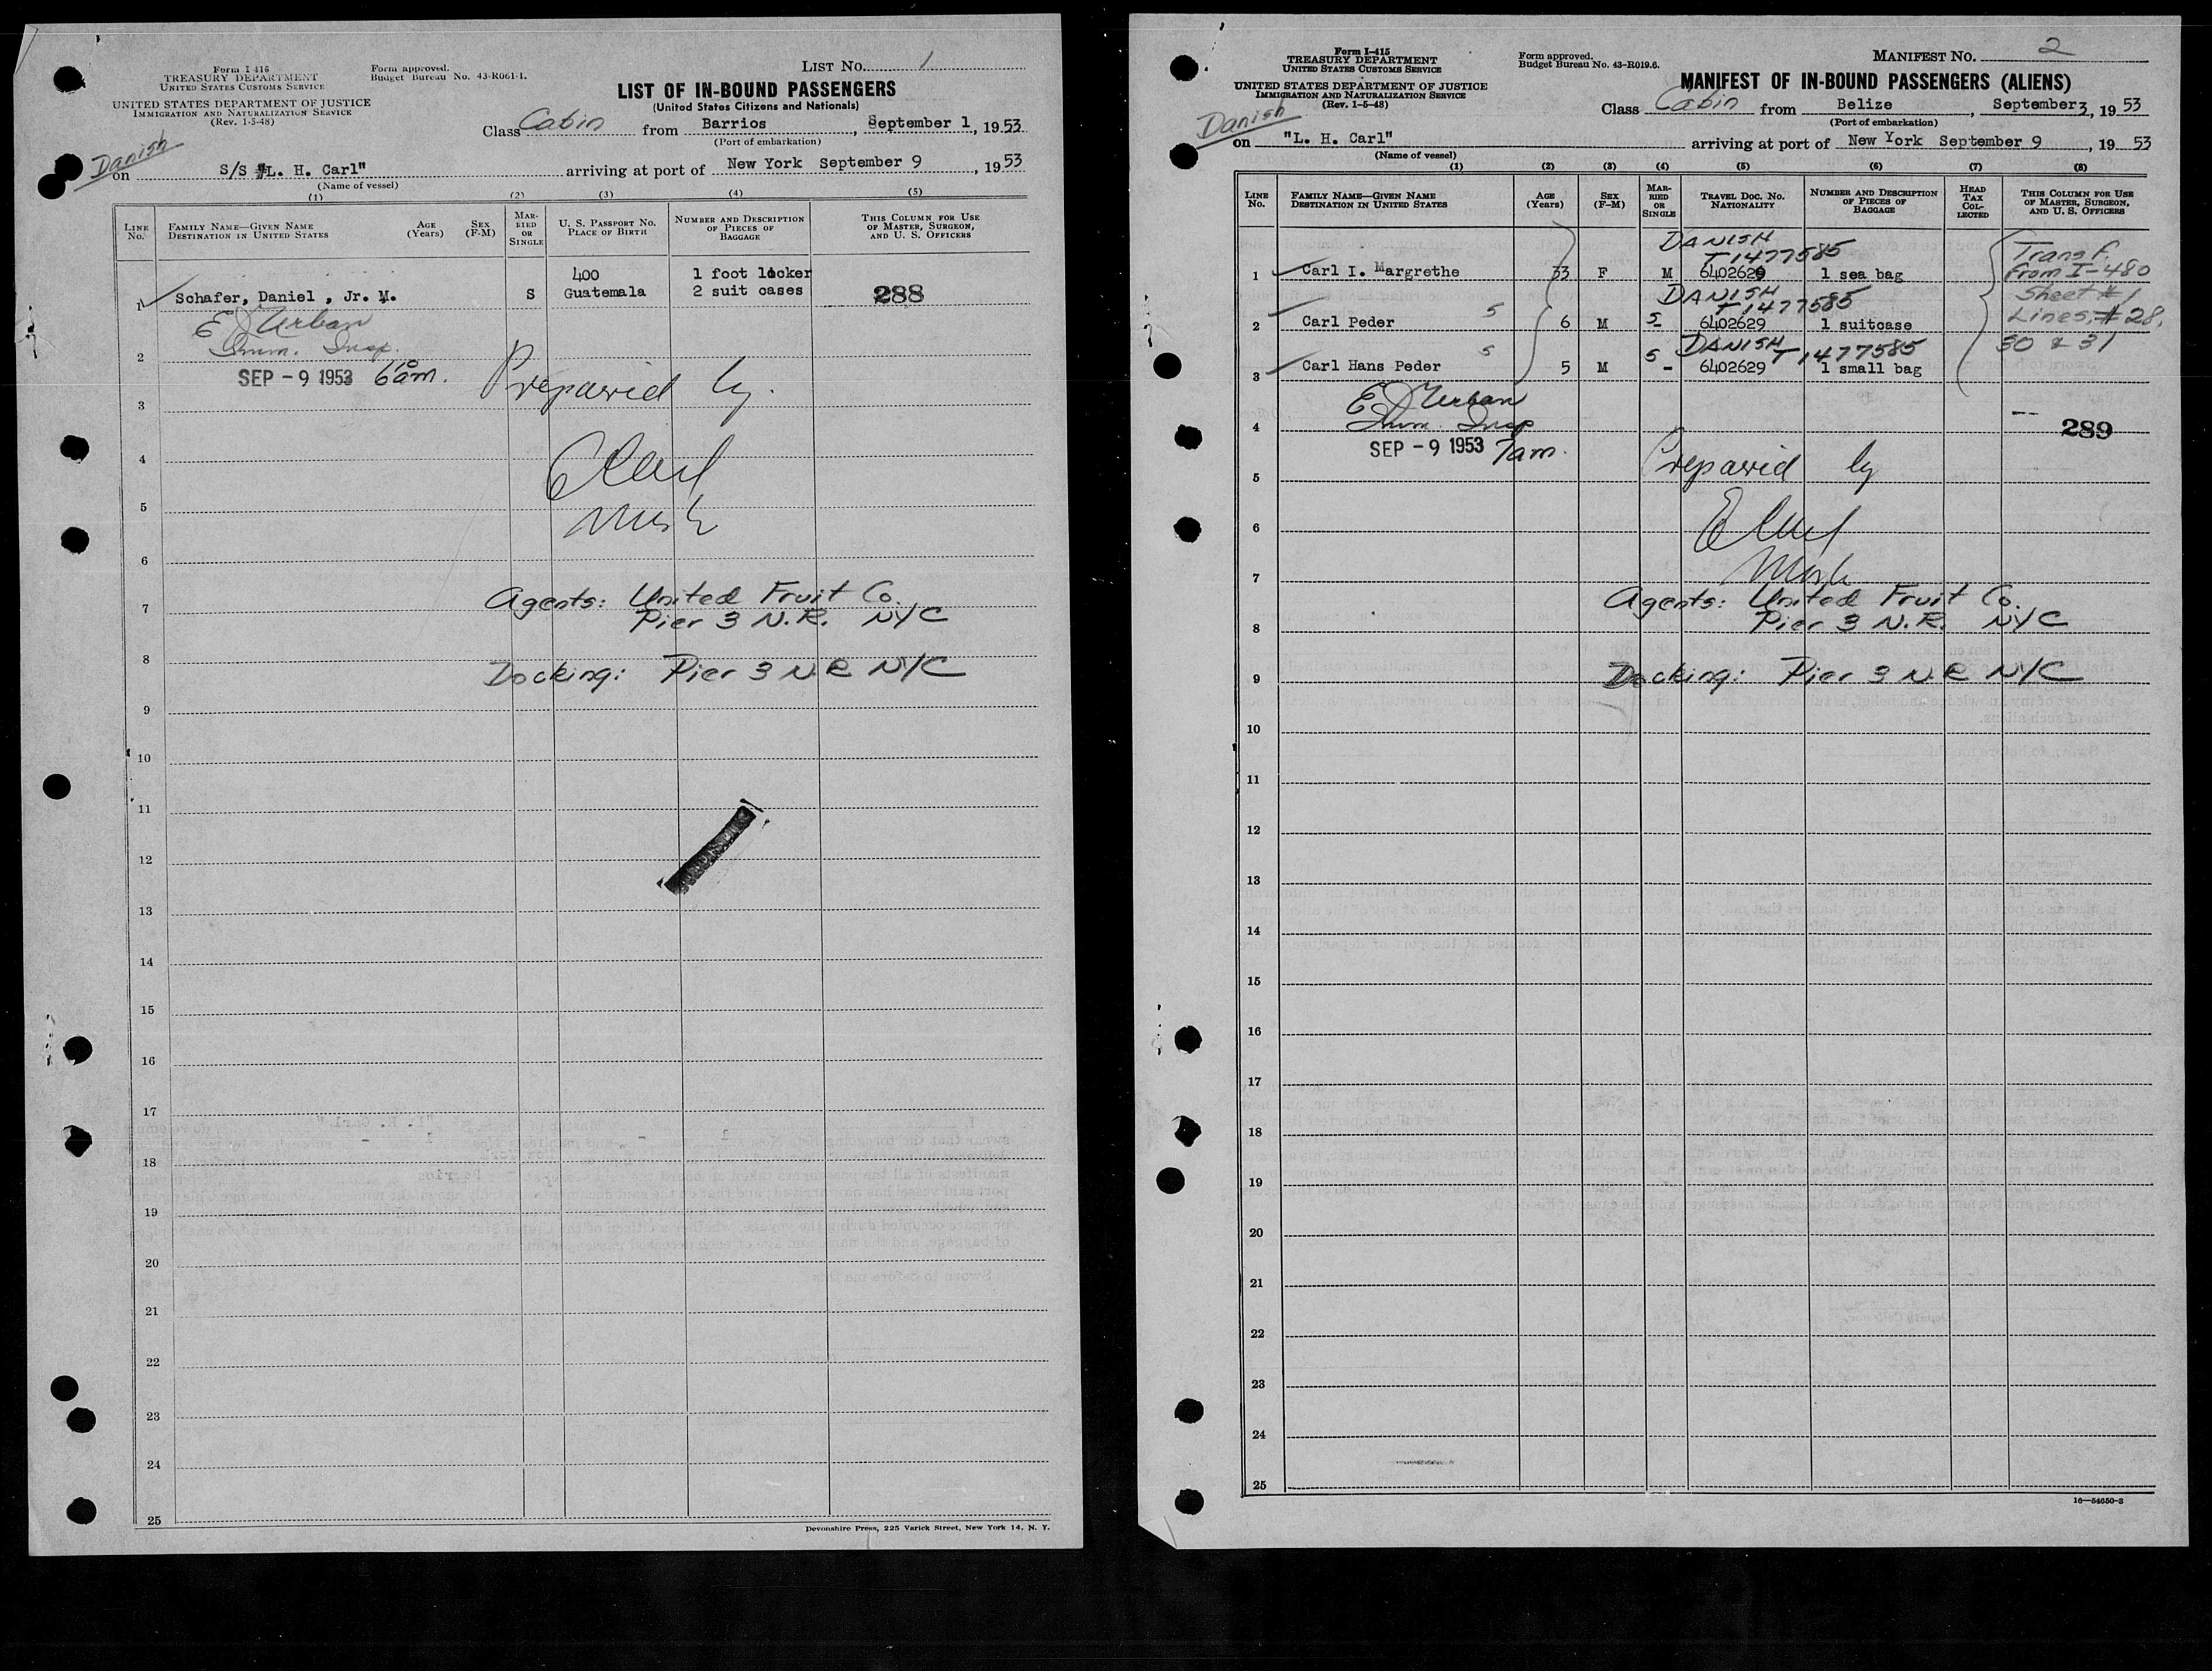 Form I 416
TREASURY DEPARTMENT
UNITED STATES CUSTOMS SERVICE
UNITED STATES DEPARTMENT OF JUSTICE
IMMIGRATION AND NATURALIZATION SERVICE
(Rev. 1-5-48)
Form approved.
Budget Bureau No. 43-R061-1.
LIST No. 1
LIST OF IN-BOUND PASSENGERS
(United States Citizens and Nationals)
Class Cabin from Barrios, September 1, 1953
(Port of embarkation)
Danish
on S/S "L. H. Carl" arriving at port of New York September 9, 1953
(Name of vessel)
(1) (2) (3) (4) (5)
LINE No.
FAMILY NAME—GIVEN NAME
DESTINATION IN UNITED STATES
AGE (Years)
SEX (F-M)
MARRIED OR SINGLE
U. S. PASSPORT No.
PLACE OF BIRTH
NUMBER AND DESCRIPTION OF PIECES OF BAGGAGE
THIS COLUMN FOR USE OF MASTER, SURGEON, AND U. S. OFFICERS
400 1 foot locker
1 Schafer, Daniel , Jr. M. S Guatemala 2 suit cases 288
E J Urban
Imm. Insp.
2
SEP - 9 1953 6 10 am.
Prepared by.
3
4
5
6
Agents: United Fruit Co.
7
Pier 3 N.R. NYC
8
Docking: Pier 3 N.R NYC
9
10
11
12
13
14
15
16
17
18
19
20
21
22
23
24
25
Devonshire Press, 225 Varick Street, New York 14, N. Y.
Form I-415
TREASURY DEPARTMENT
UNITED STATES CUSTOMS SERVICE
UNITED STATES DEPARTMENT OF JUSTICE
IMMIGRATION AND NATURALIZATION SERVICE
(Rev. 1-5-48)
Form approved.
Budget Bureau No. 43-R019.6.
MANIFEST No. 2
MANIFEST OF IN-BOUND PASSENGERS (ALIENS)
Class Cabin from Belize, September 3, 1953
(Port of embarkation)
Danish
on "L. H. Carl" arriving at port of New York September 9, 1953
(Name of vessel)
(1) (2) (3) (4) (5) (6) (7) (8)
LINE No.
FAMILY NAME—GIVEN NAME
DESTINATION IN UNITED STATES
AGE (Years)
SEX (F-M)
MARRIED OR SINGLE
TRAVEL DOC. No.
NATIONALITY
NUMBER AND DESCRIPTION OF PIECES OF BAGGAGE
HEAD TAX COLLECTED
THIS COLUMN FOR USE OF MASTER, SURGEON, AND U. S. OFFICERS
DANISH
T 1477585
1 Carl I. Margrethe 33 F M 6402629 1 sea bag
DANISH
T 1477585
2 Carl Peder 5 6 M S - 6402629 1 suitcase
DANISH T 1477585
3 Carl Hans Peder 5 5 M S - 6402629 1 small bag
Transf.
from I-480
Sheet #1
Lines, # 28,
30 & 31
E J Urban
Imm. Insp
4
289
SEP - 9 1953 7am.
Prepared by
5
6
7
Agents: United Fruit Co.
8
Pier 3 N.R. NYC
9
Docking: Pier 3 N.R NYC
10
11
12
13
14
15
16
17
18
19
20
21
22
23
24
25
16—54650-3